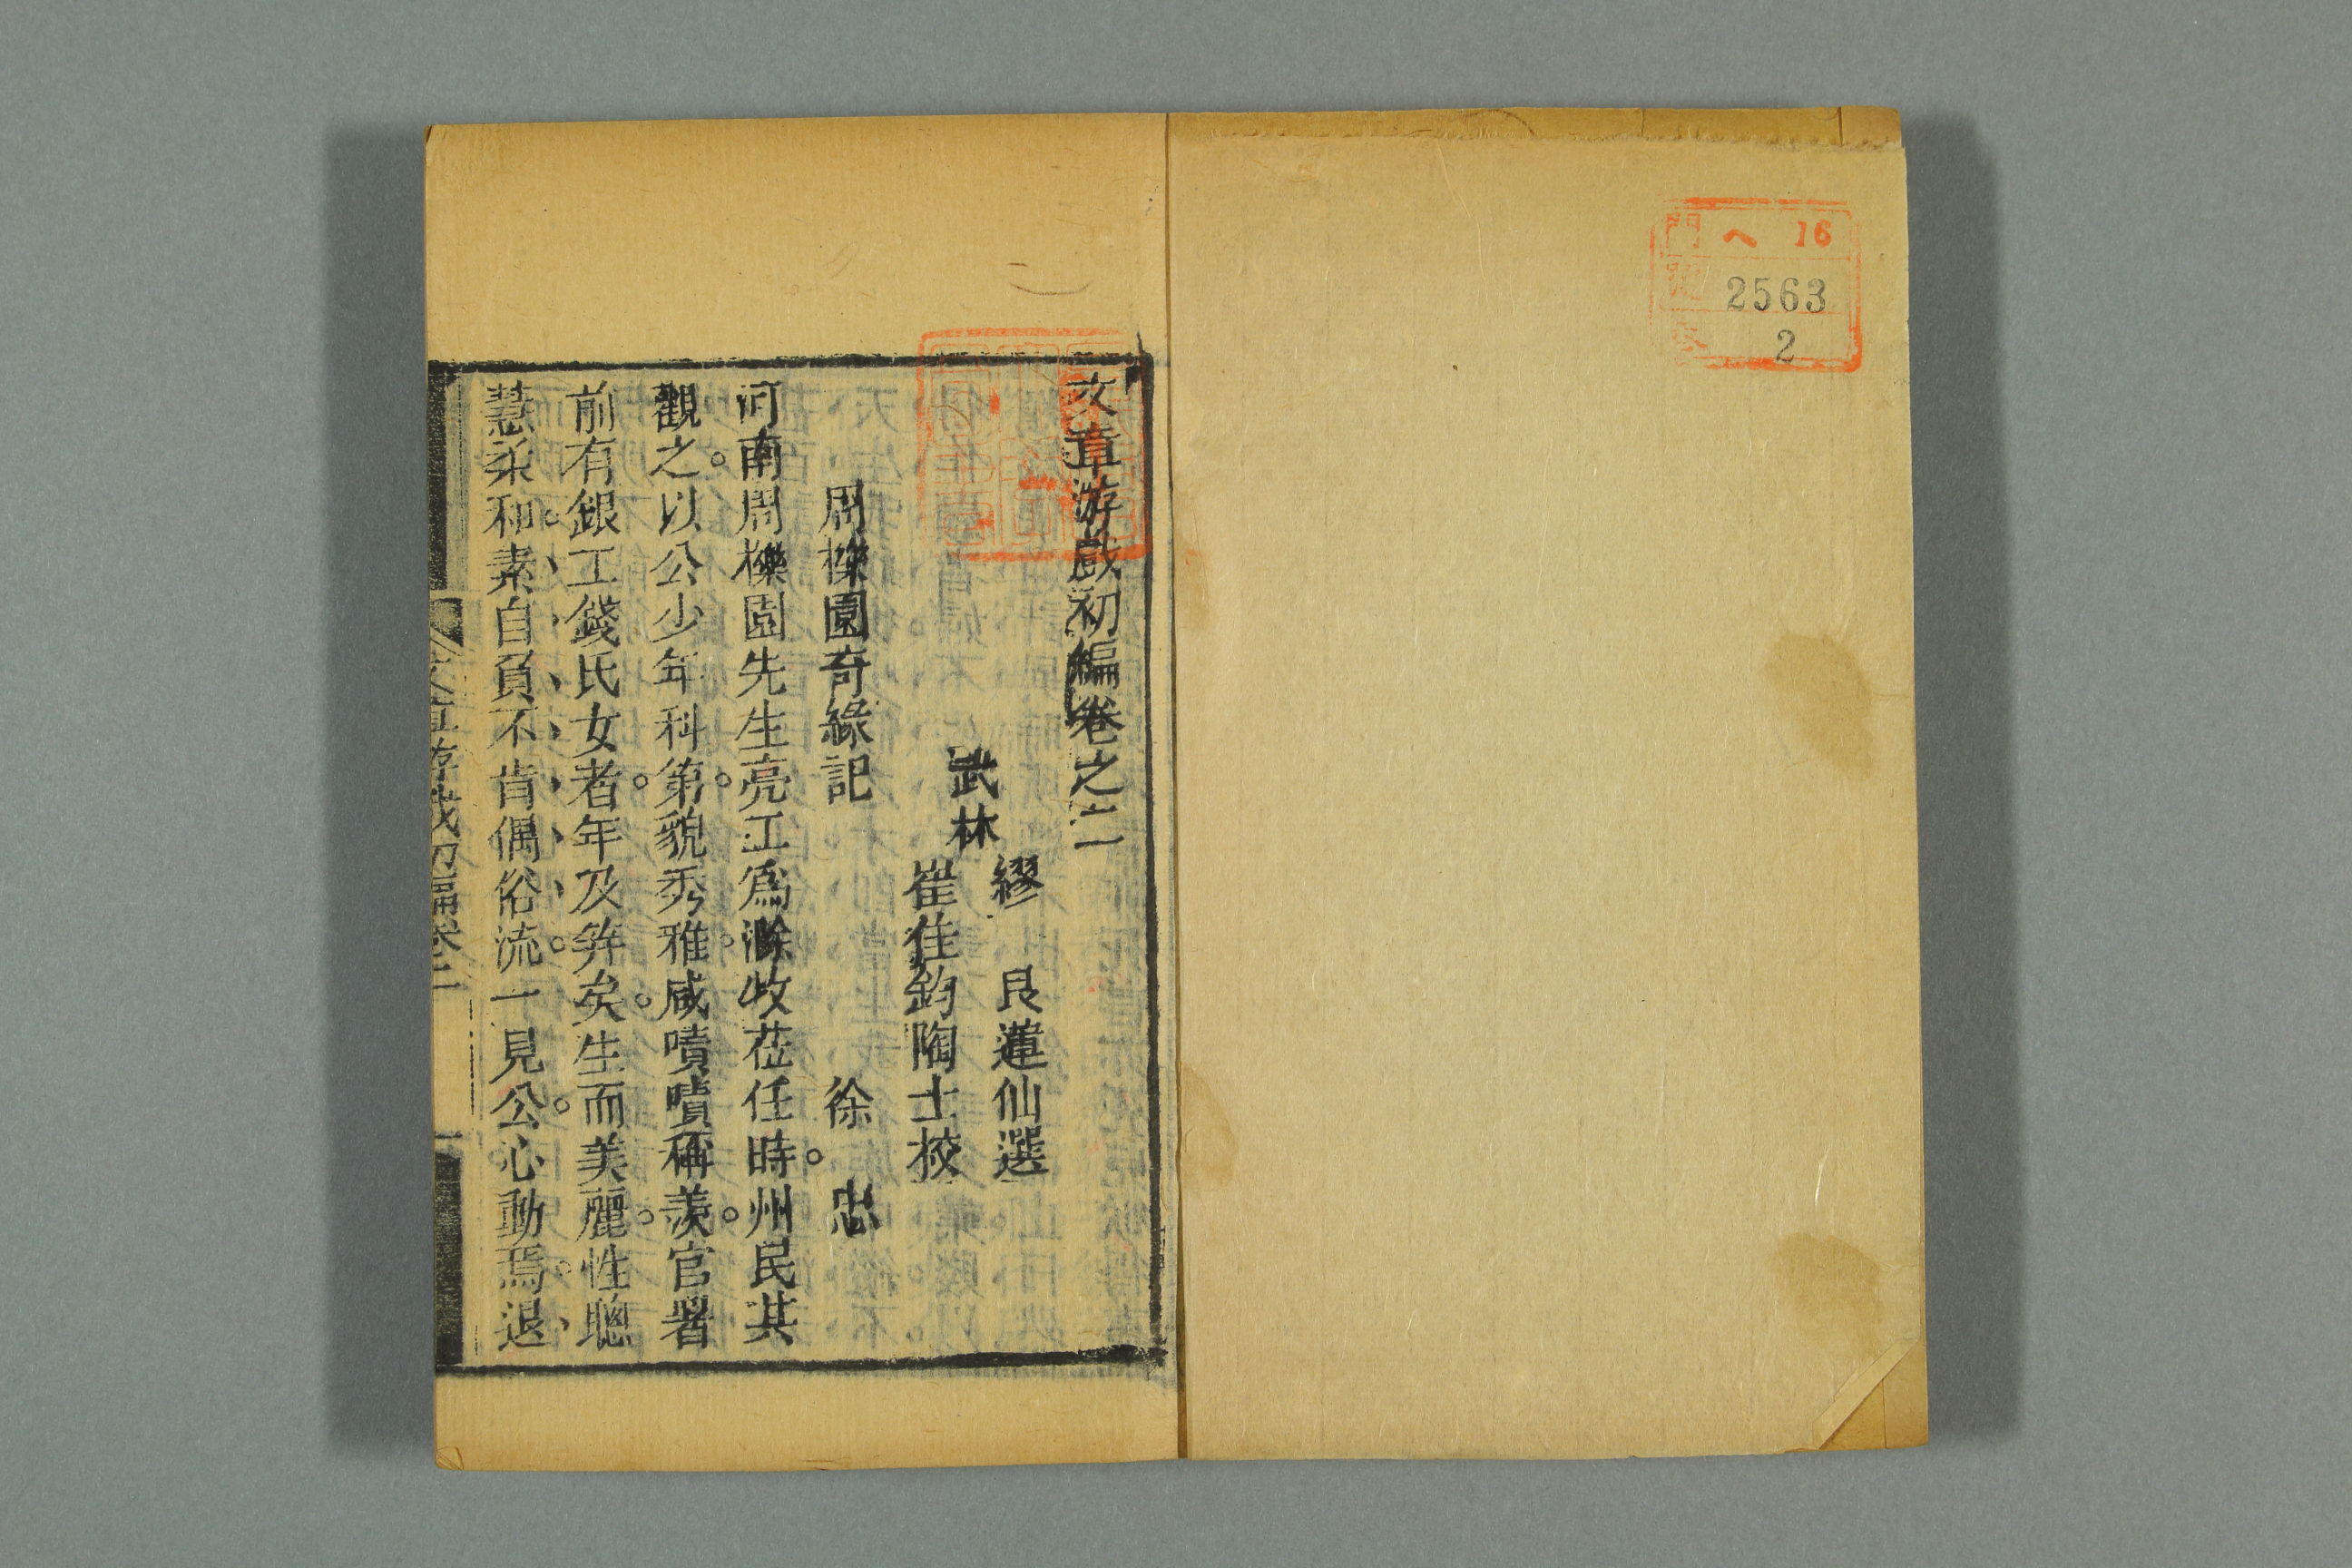 門 ヘ 16
號 2563
2
文章游戲初編卷之二
武林
繆艮蓮仙選
崔佳鈞陶士挍
周櫟園奇緣記 徐忠
河南周櫟園先生亮工爲滁牧莅任時。州民其
觀之。以公少年科第。貌秀雅。咸嘖嘖稱羨。官署
前有銀工錢氏女者。年及笄矣。生而美麗。性聰
慧柔和。素自負不肯偶俗流。一見公。心動焉。退
文章游戲初編卷二 一